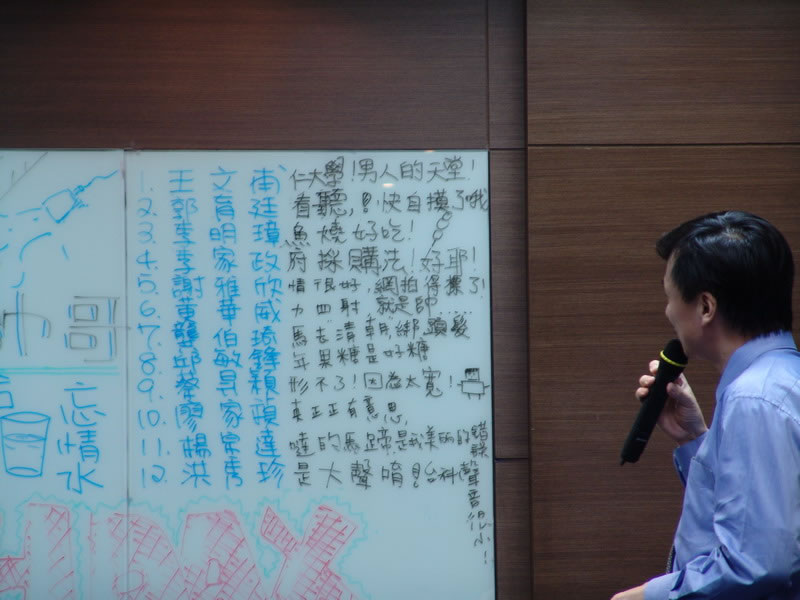 1. 王文甫 仁大學!男人的天堂!
2. 郭育廷 看聽,!快自摸了哦
3. 李明璋 魚燒好吃!
4. 李家政 府採購法!好耶!
5. 謝雅欣 情很好,網拍得標了!
6. 黃華威 力四射 就是帥.....
7. 龔伯琦 馬去清朝,綁頭髮
8. 邱敏鋒 年果糖是好糖
9. 蔡旻穎 形不了!因為太寬!
10. 廖家 正正有意思,
11. 楊宗達 噠的馬蹄是我美麗的錯誤
12. 洪秀珍 是大聲唷!台科聲音很小!
哥
忘情水